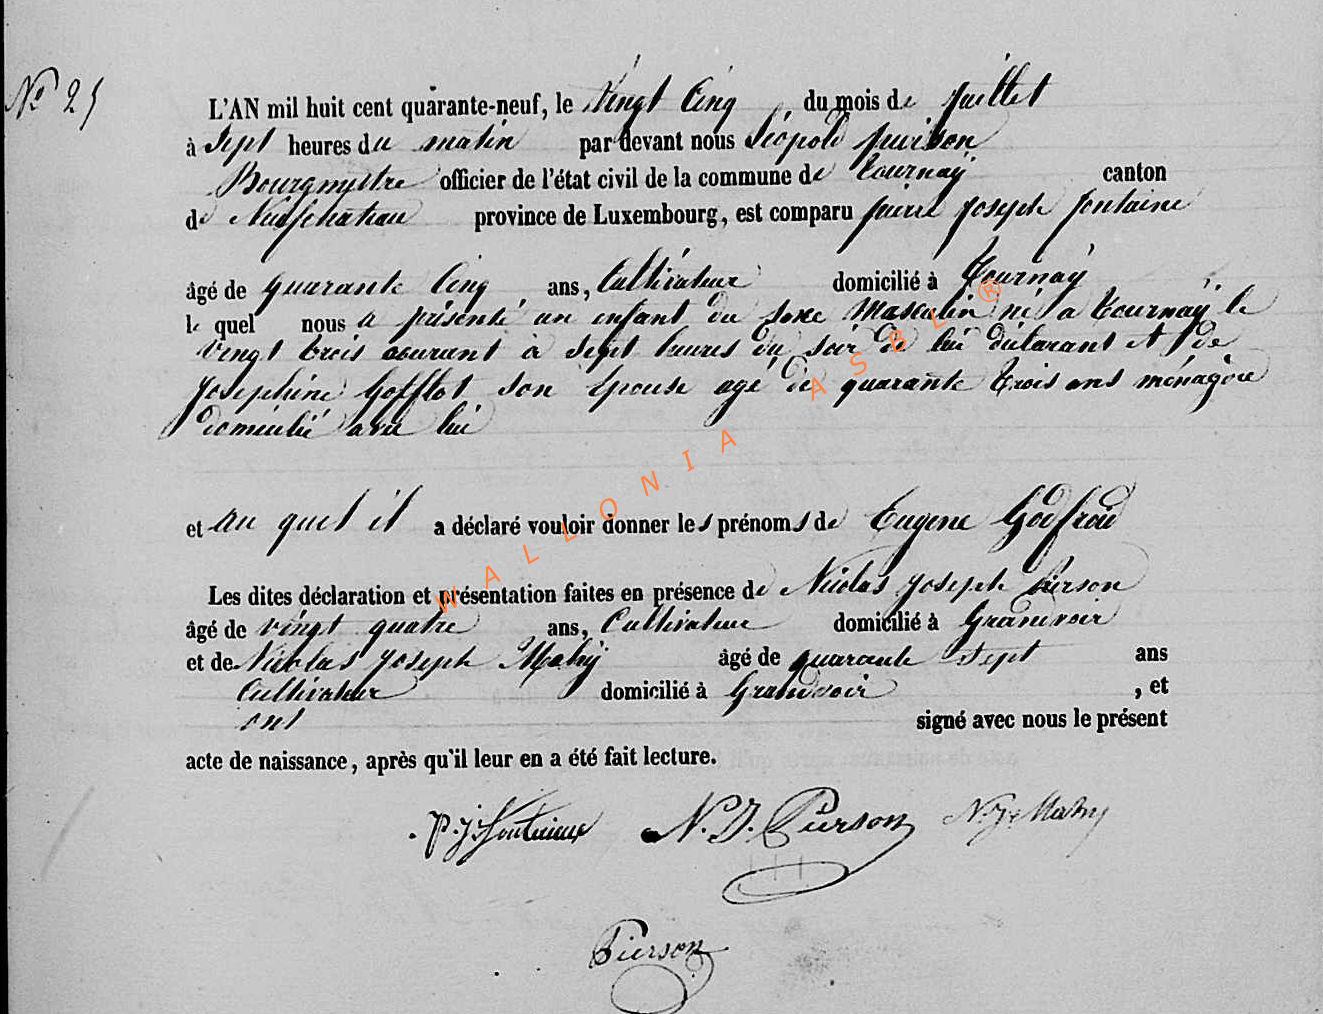 No 25
L'AN mil huit cent quarante-neuf, le Vingt Cinq du mois de Juillet
à Sept heures du matin par devant nous Léopold pierson
Bourgmestre officier de l'état civil de la commune de tournaÿ canton
de Neufchateau province de Luxembourg, est comparu pierre joseph fontaine
âgé de quarante Cinq ans, Cultivateur domicilié à tournaÿ
le quel nous a présenté un enfant du sexe Masculin né a tournaÿ le
vingt trois courant à sept heures du soir de lui déclarant et de
Josephine Gofflot son Epouse agé de quarante trois ans ménagère
domicilié avec lui
et au quel il a déclaré vouloir donner les prénoms de Eugene Godfroid
Les dites déclaration et présentation faites en présence de Nicolas joseph pierson
âgé de vingt quatre ans, Cultivateur domicilié à Grandvoir
et de Nicolas joseph Mahÿ âgé de quarante sept ans
Cultivateur domicilié à Grandvoir, et
ont signé avec nous le présent
acte de naissance, après qu'il leur en a été fait lecture.
P. J. Fontaine N. J. Pierson N. J. Mahy
Pierson
WALLONIA ASBL ®